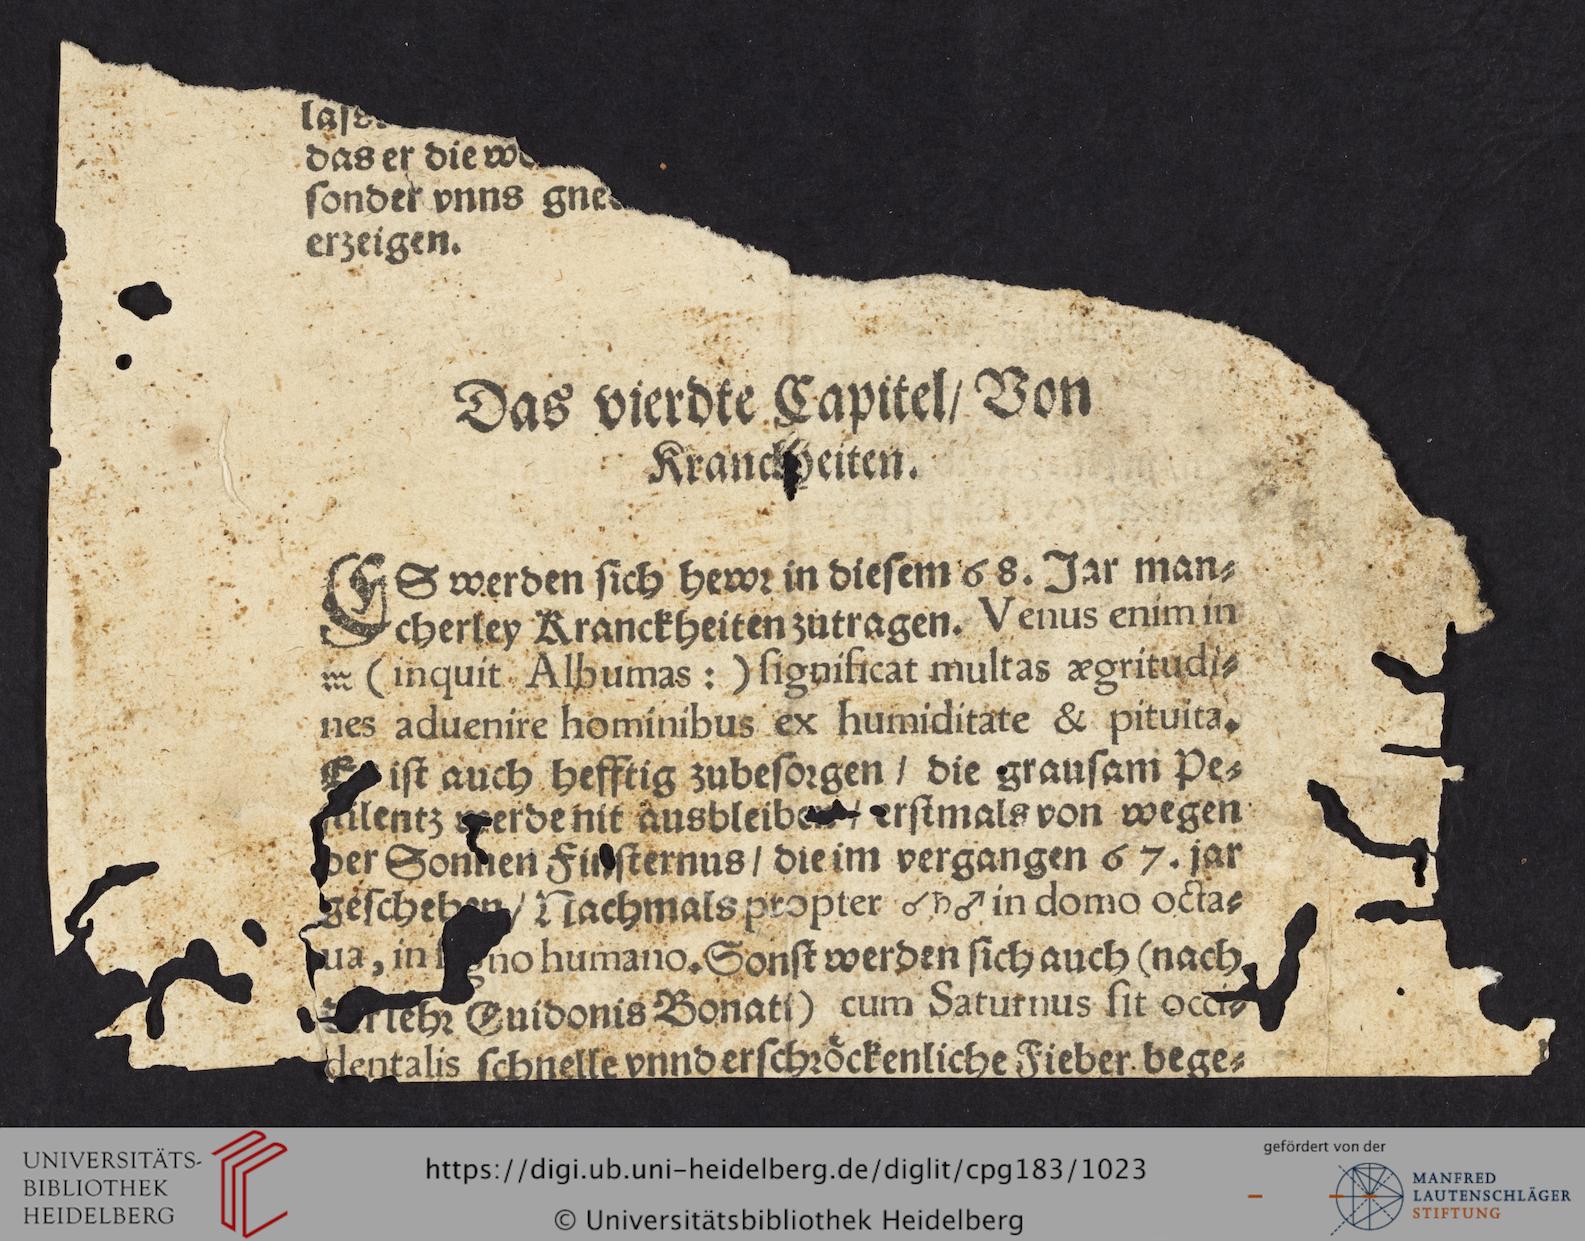 das er die
sonder vnns
erzeigen.
Das vierdte Capitel/ Von
Kranckheiten.
ES werden sich hewr in diesem 68. Jar man⸗
cherley Kranckheiten zutragen. Venus enim in
♏ (inquit Albumas: ) significat multas ægritudi⸗
nes aduenire hominibus ex humiditate & pituita.
ist auch hefftig zubesorgen / die grausam Pe⸗
stilentz werde nit ausbleiben / erstmals von wegen
der Sonnen Finsternus / die im vergangen 67. jar
geschehen / Nachmals propter ☌♄♂ in domo octa⸗
ua, in signo humano. Sonst werden sich auch (nach
der lehr Guidonis Bonati) cum Saturnus sit occi⸗
dentalis schnelle vnnd erschröckenliche Fieber bege⸗
UNIVERSITÄTS-
BIBLIOTHEK
HEIDELBERG
https://digi.ub.uni-heidelberg.de/diglit/cpg183/1023
© Universitätsbibliothek Heidelberg
gefördert von der
MANFRED
LAUTENSCHLÄGER
STIFTUNG